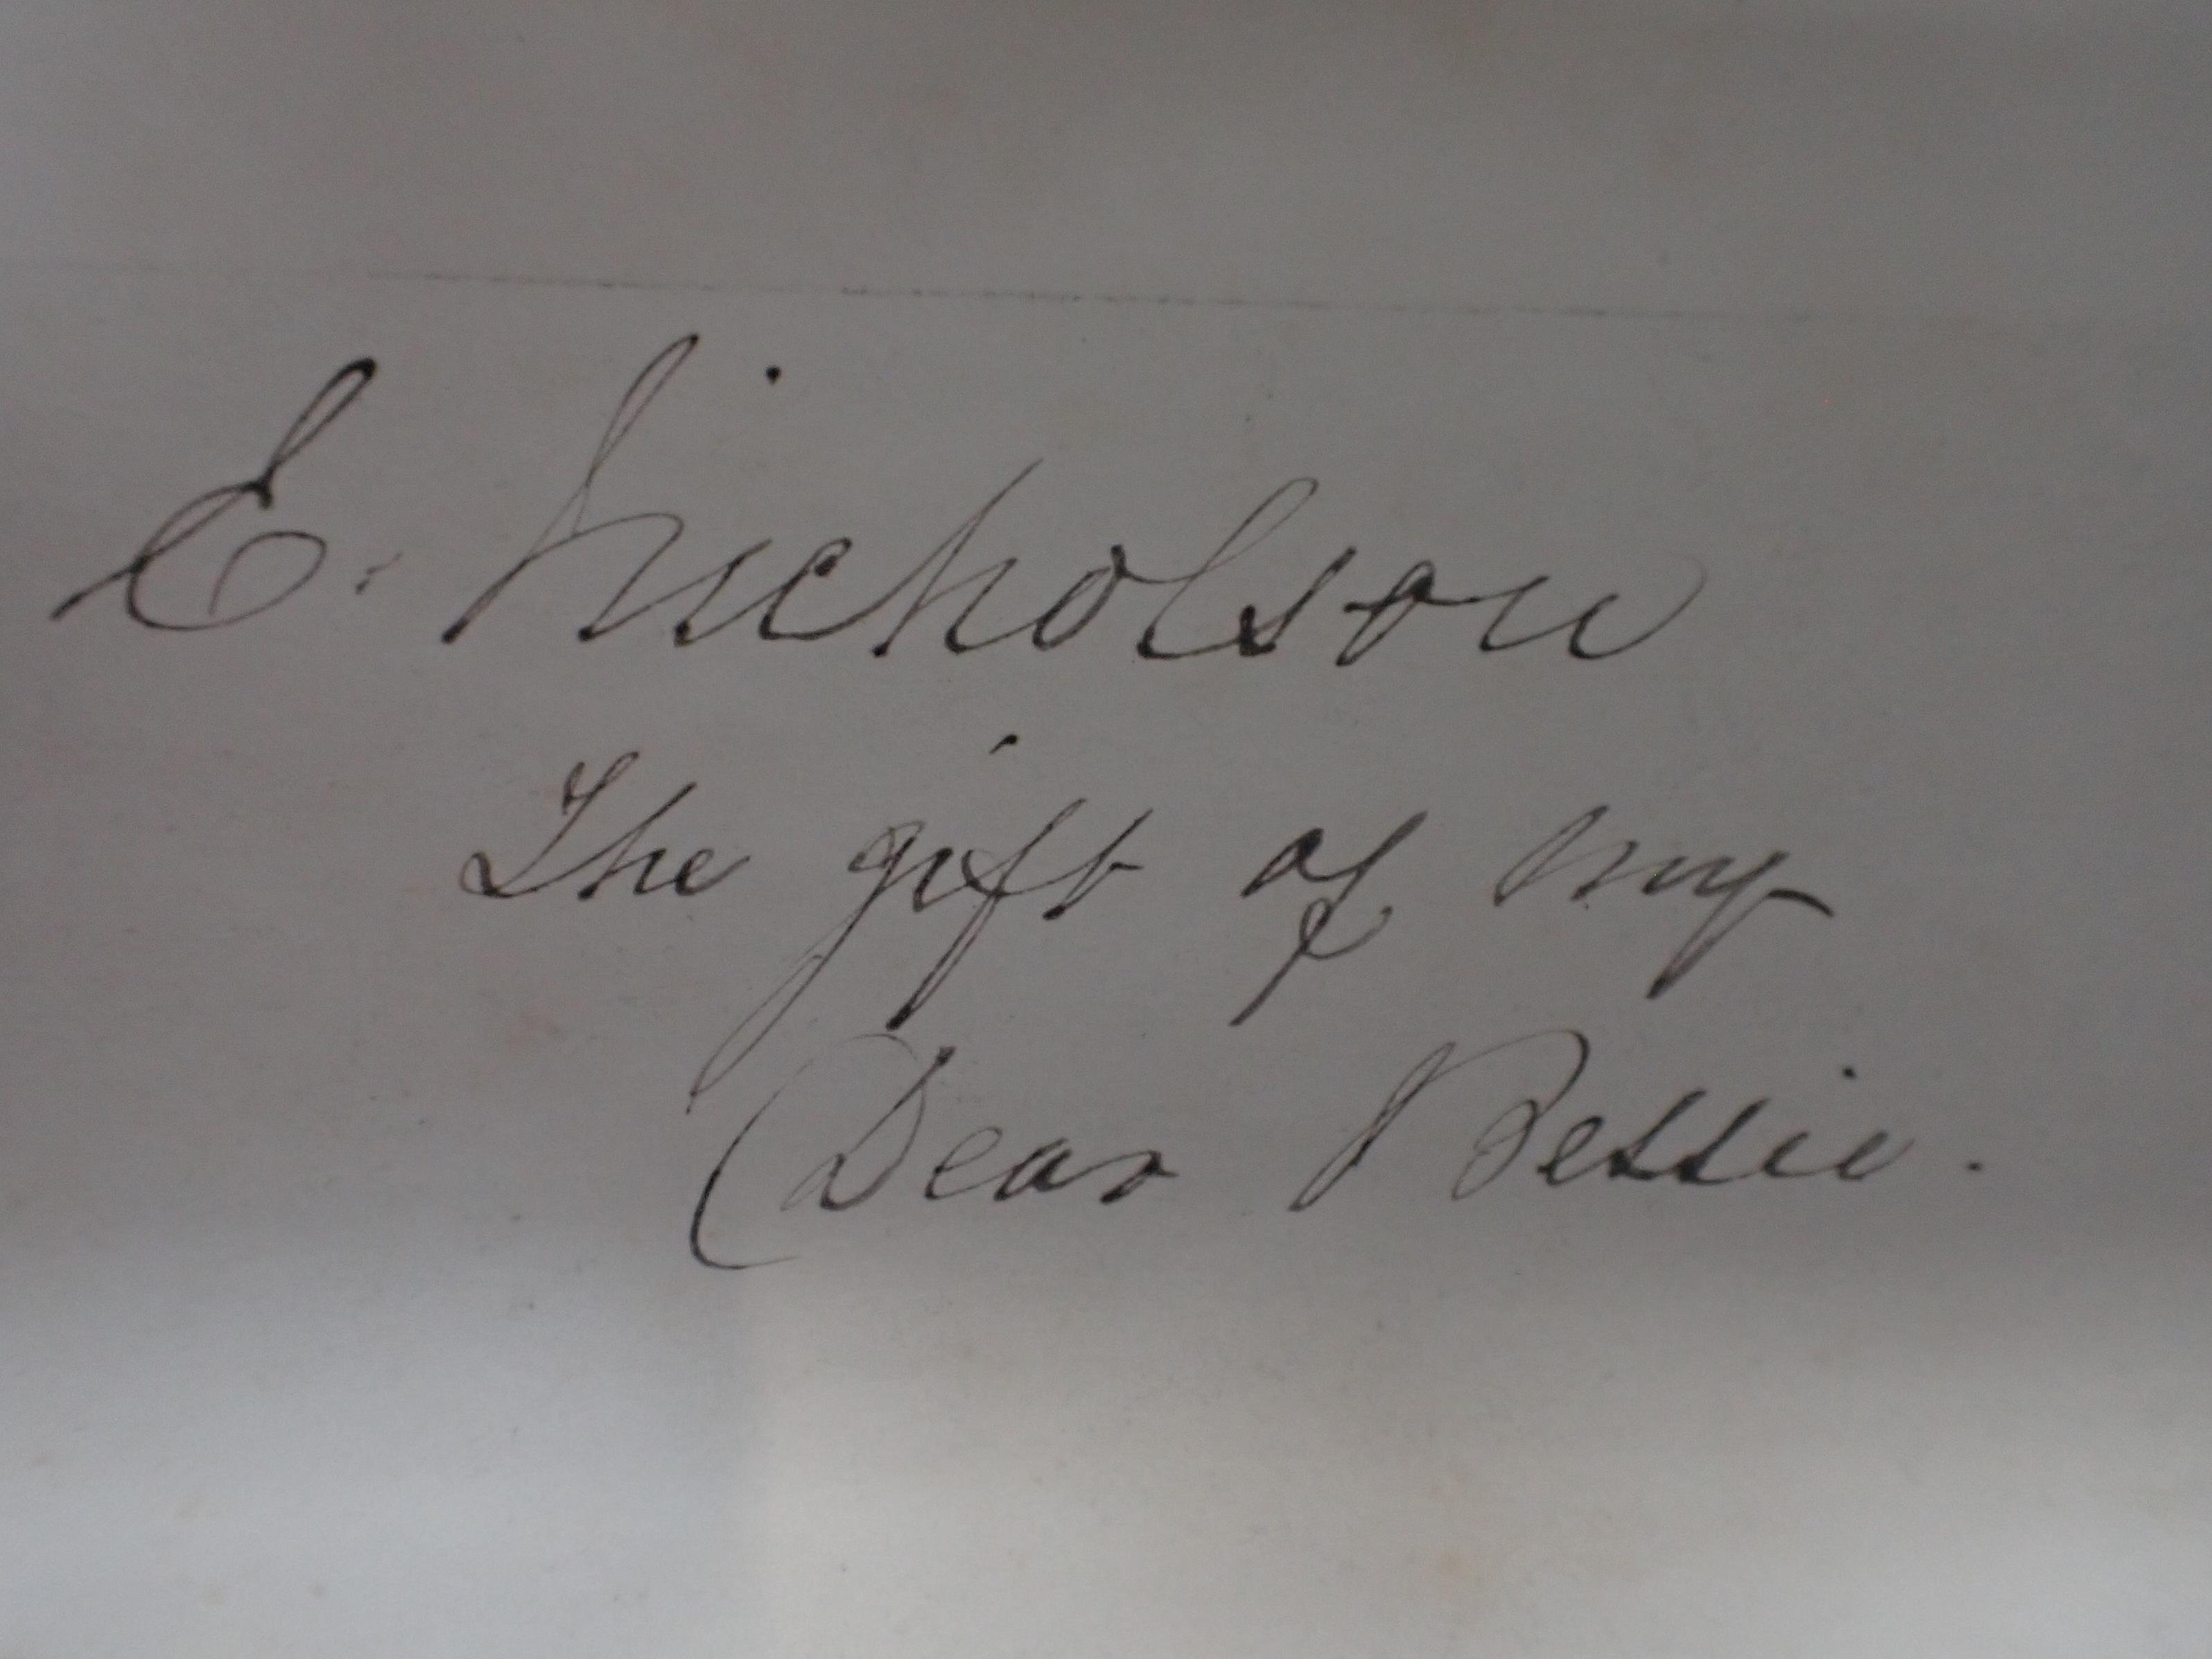 E. Nicholson
The gift of my
Dear Bessie.